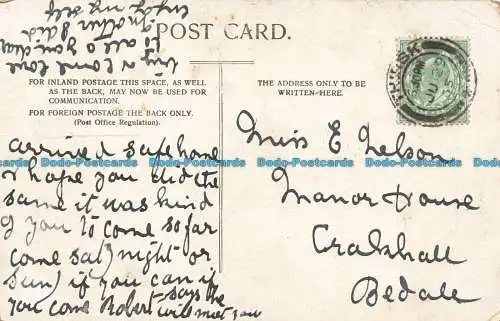 POST CARD.
FOR INLAND POSTAGE THIS SPACE, AS WELL
AS THE BACK, MAY NOW BE USED FOR
COMMUNICATION.
FOR FOREIGN POSTAGE THE BACK ONLY.
(Post Office Regulation).
THE ADDRESS ONLY TO BE
WRITTEN HERE.
THIRSK
arrived safe home
I hope you did the
same it was kind
of you to come so far
come sat) night or
sun) if you can if
you come Robert says he
will meet you
love
to all
Miss E Nelson
Manor House
Crakehall
Bedale
Dodo-Postcards Dodo-Postcards Dodo-Postcards Dodo-Postcards Dodo-Postcards